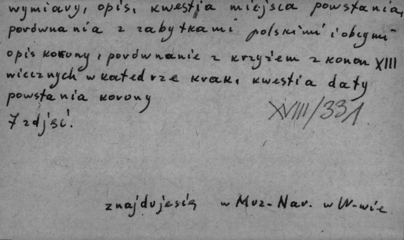 wymiary, opis, kwestja miejsca powstania,
porównania z zabytkami polskimi i obcymi
opis korony, porównanie z krzyżem z koron XIII
wiecznych w katedrze krak. kwestia daty
powstania korony
7 zdjęć.
XVIII/331
znajduje się w Muz. Nar. w W-wie